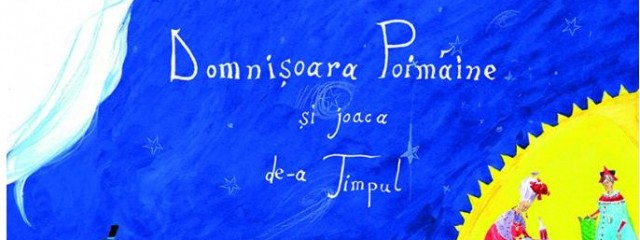 Domnișoara Poimâine
și joaca
de-a Timpul